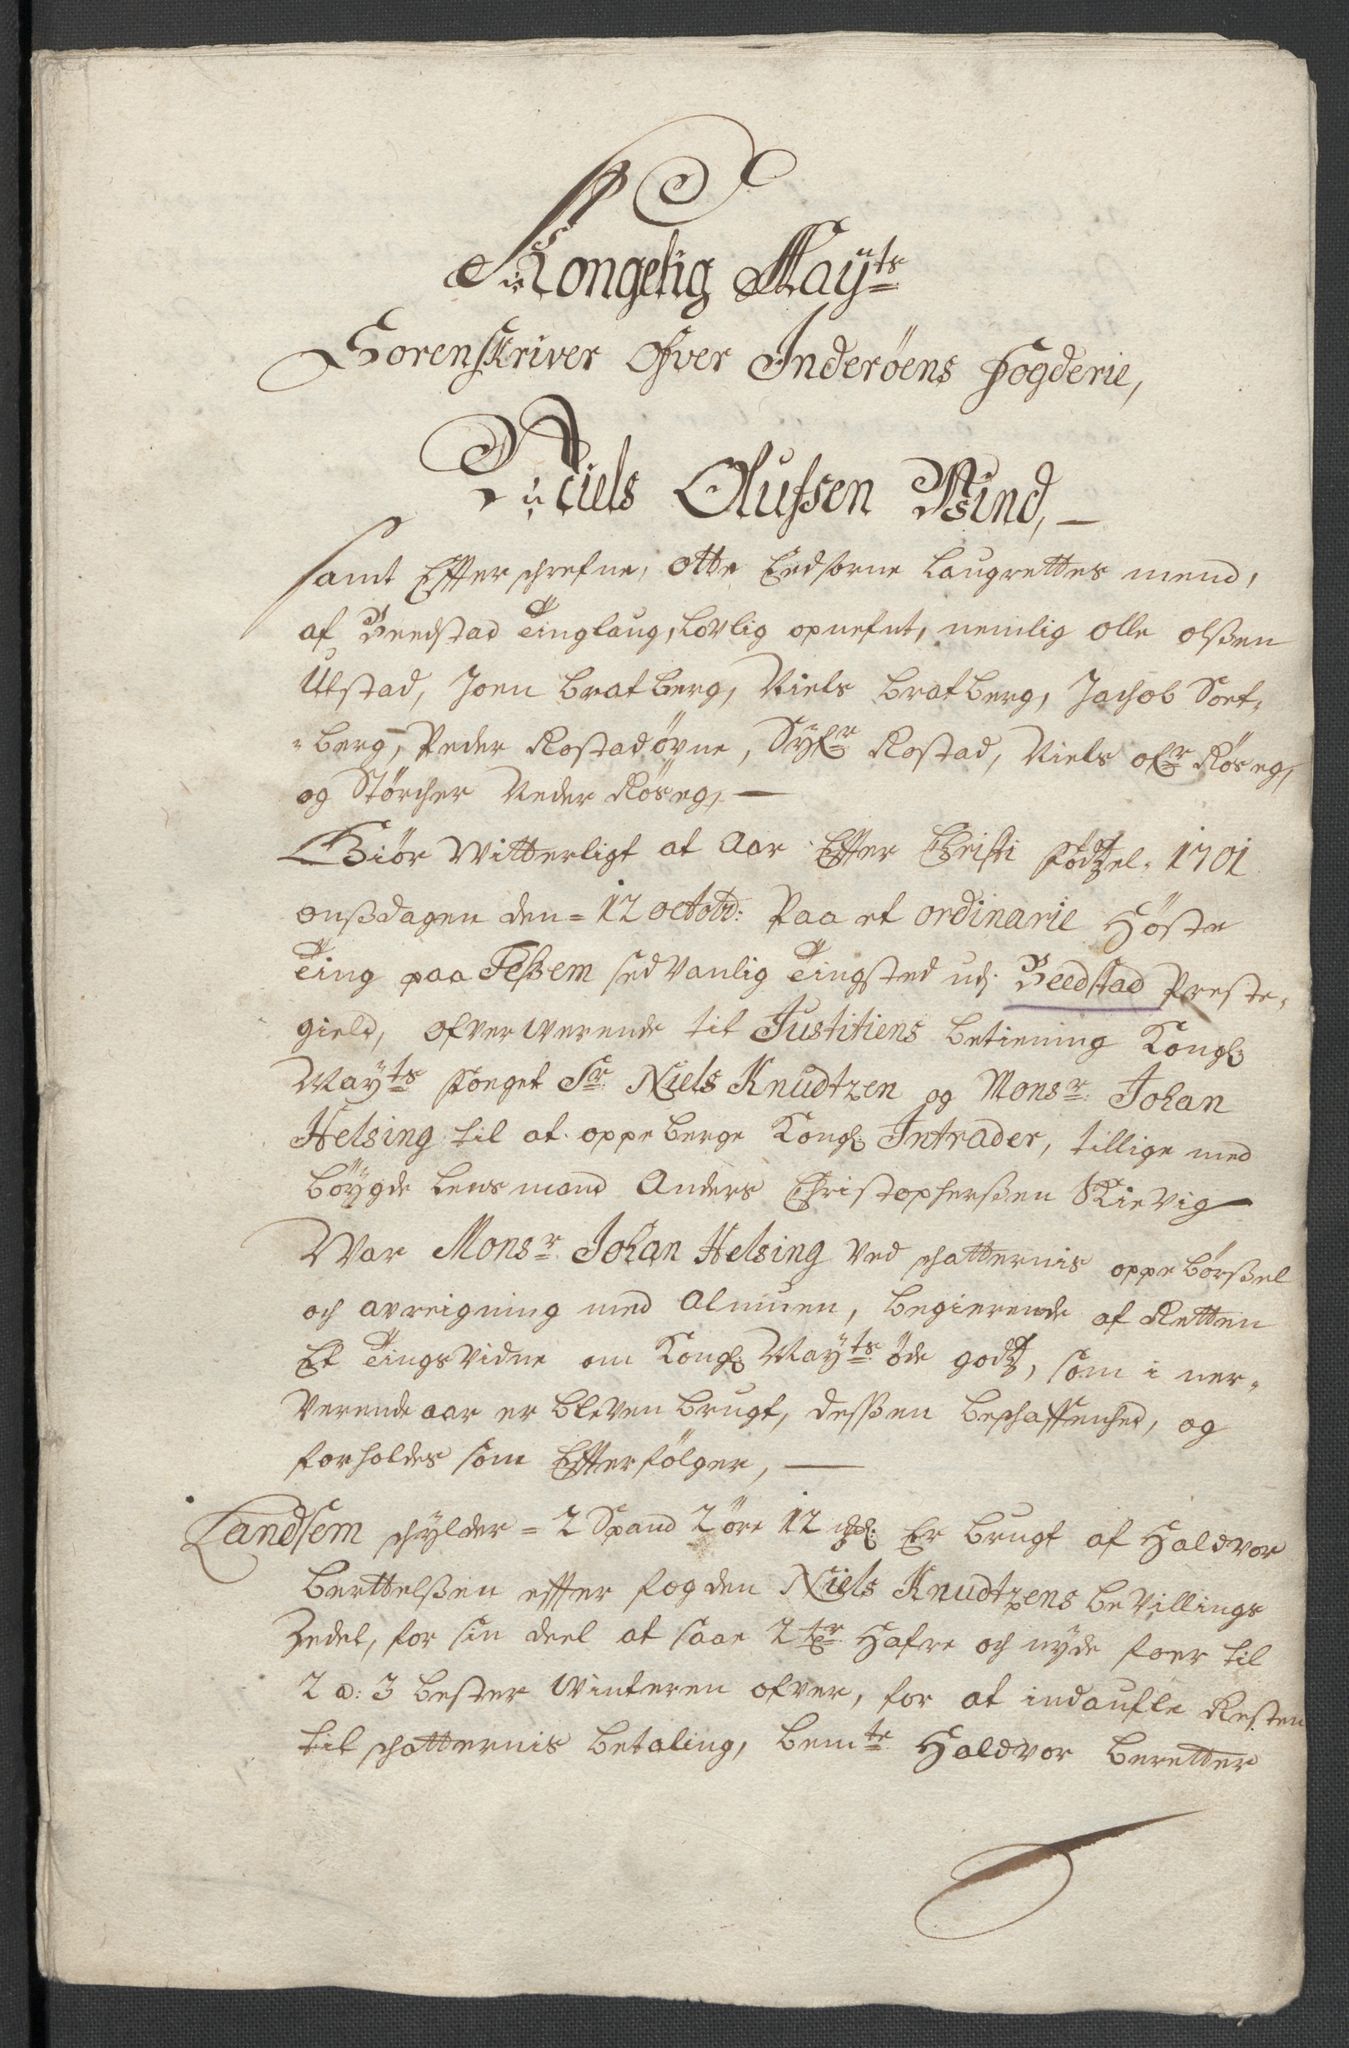 Kongelig Mayts
Sorenskriver Ofver Inderöens Fogderie,
Niels Olufsen Wind,
samt Effterschrefne, otte Eedsorne Laugrettes mend,
af Beedstad Tinglaug, Lovlig opnefnt, nemlig olle olßen
Ulstad, Joen Bratberg, Niels Bratberg, Jachob Soet-
berg, Peder Rostadövne, Syfr Rostad, Niels ofr Röseg,
og Störcher Neder Röseg,
Giör Witterligt at Aar Effter Christi födtzel, 1701
onßdagen den 12 octobr: Paa et ordinarie Höste
Ting paa Feßem sedvanlig Tingsted udj Beedstad Preste-
gield, ofververende til Justitiens betiening Kongl
Mayts foeget Sr Niels Knudtzen og Monsr Johan
Helsing til at oppeberge Kongl Intrader, tillige med
böygde Lensmand Anders Christophersen Skievig
War Monsr Johan Helsing ved schatternis oppebörßel
och avreigning med Almuen, begierende af Retten
Et Tingsvidne om Kongl Mayts öde godtz, som i ner-
verende aar er bleven brugt, desßen beschaffenhed, og
forholdes som Efterfölger,
Landsem schylder = 2 Spand 2 öre 12 mkl. Er brugt af Haldvor
Berttelßen effter fogden Niels Knudtzens bevillings
Zedel, for sin deel at saae 2 tr Hafre och nyde foer til
2 a: 3 bester Winteren ofver, for at indaufle Resten
til schatternis betaling, bemte Haldvor beretter